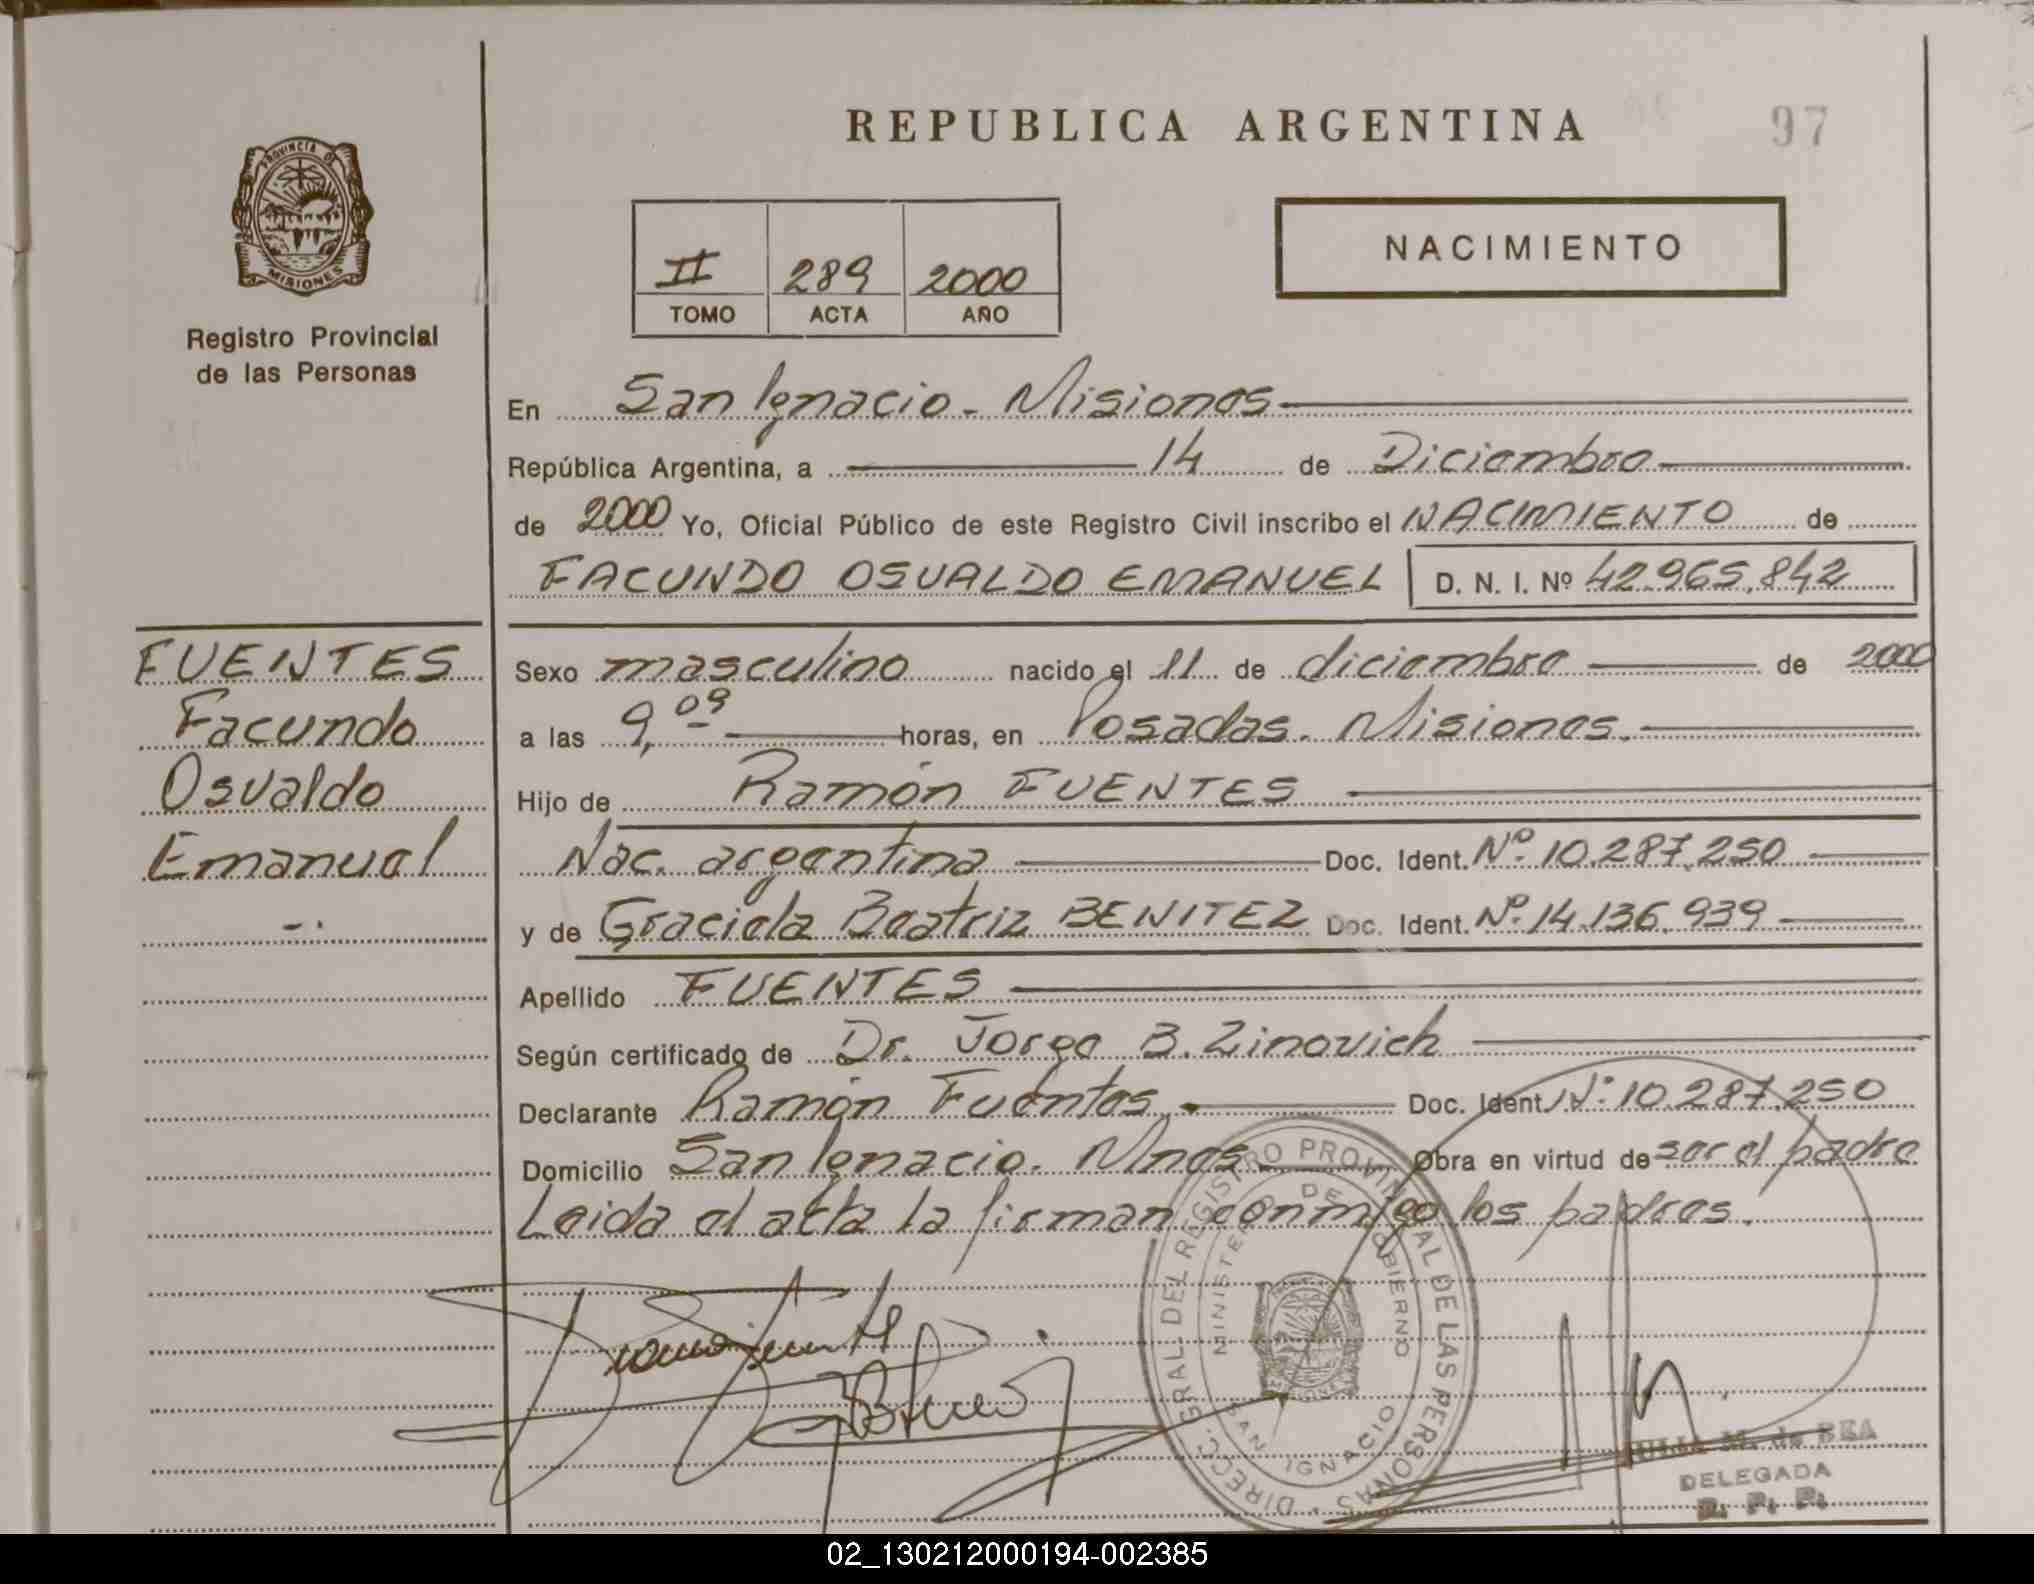 REPUBLICA ARGENTINA
97
PROVINCIA DE
MISIONES
Registro Provincial
de las Personas
II 289 2000
TOMO ACTA AÑO
NACIMIENTO
En San Ignacio - Misiones
República Argentina, a 14 de Diciembre
de 2000 Yo, Oficial Público de este Registro Civil inscribo el NACIMIENTO de
FACUNDO OSVALDO EMANUEL D. N. I. Nº 42.965.842
FUENTES
Facundo
Osvaldo
Emanuel
Sexo masculino nacido el 11 de diciembre de 2000
a las 9,09 horas, en Posadas. Misiones.
Hijo de Ramón FUENTES
Nac. argentina Doc. Ident. Nº 10.287.250
y de Graciela Beatriz BENITEZ Doc. Ident. Nº 14.136.939
Apellido FUENTES
Según certificado de Dr. Jorge B. Zinovich
Declarante Ramón Fuentes. Doc. Ident. Nº 10.287.250
Domicilio San Ignacio. Mnes. Obra en virtud de ser el padre
Leida el acta la firman conmigo los padres.
DIRECC. GRAL. DEL REGISTRO PROVINCIAL DE LAS PERSONAS
MINISTERIO DE GOBIERNO
SAN IGNACIO
M. de REA
DELEGADA
R. P. P.
02_130212000194-002385